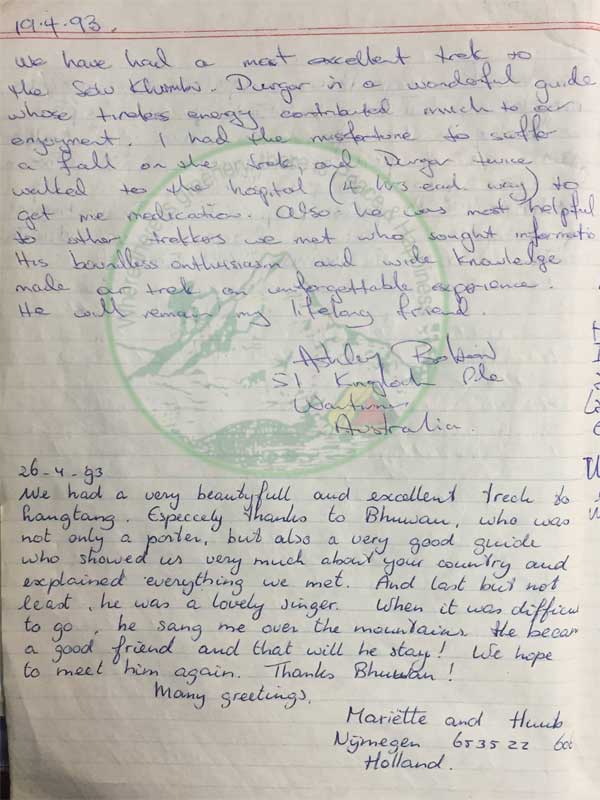 19.4.93.
We have had a most excellent trek to
the Solu Khumbu. Durgar is a wonderful guide
whose tireless energy contributed much to our
enjoyment. I had the misfortune to suffer
a fall on the trek, and Durgar twice
walked to the hospital (4 hrs each way) to
get me medication. Also he was most helpful
to other trekkers we met who sought informatio
His boundless enthusiasm and wide knowledge
made our trek an unforgettable experience.
He will remain my lifelong friend.
Ashley
51
Australia.
26-4-93
We had a very beautyfull and excellent treck to
Langtang. Especcely thanks to Bhuwan, who was
not only a porter, but also a very good guide
who showed us very much about your country and
explained everything we met. And last but not
least, he was a lovely singer. When it was difficu
to go, he sang me over the mountains. He becam
a good friend and that will he stay! We hope
to meet him again. Thanks Bhuwan!
Many greetings,
Mariëtte and Huub
Nijmegen 653522
Holland.